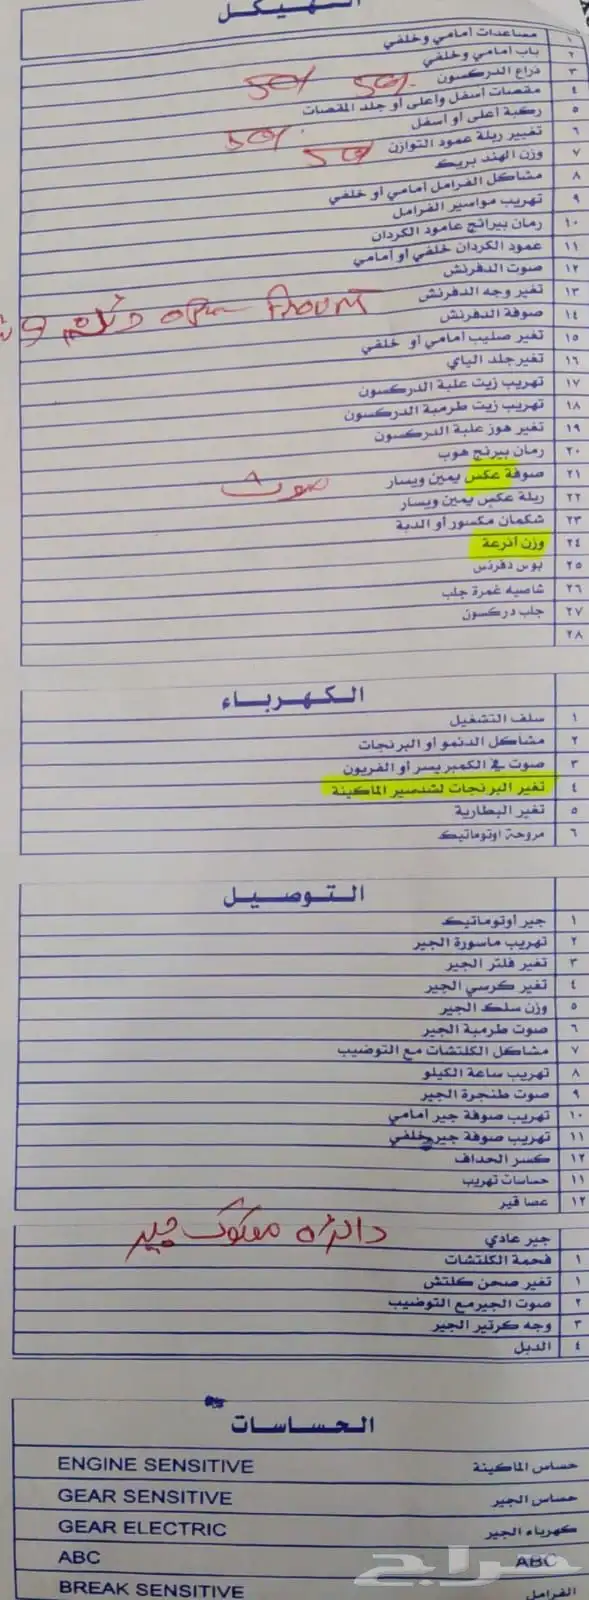 الهيكل
١ مساعدات أمامي وخلفي
٢ باب أمامي وخلفي
٣ ذراع الدركسون 50% 50%
٤ مقصات أسفل وأعلى أو جلد المقصات
٥ ركبة أعلى أو أسفل 50%
٦ تغيير ربلة عمود التوازن 50%
٧ وزن الهند بريك
٨ مشاكل الفرامل أمامي أو خلفي
٩ تهريب مواسير الفرامل
١٠ رمان بيرانج عامود الكردان
١١ عمود الكردان خلفي أو أمامي
١٢ صوت الدفرنش
١٣ تغير وجه الدفرنش
١٤ صوفة الدفرنش
١٥ تغير صليب أمامي أو خلفي
١٦ تغير جلد الياي
١٧ تهريب زيت علبة الدركسون
١٨ تهريب زيت طرمبة الدركسون
١٩ تغير هوز علبة الدركسون
٢٠ رمان بيرنج هوب
٢١ صوفة عكس يمين ويسار صوت
٢٢ ربلة عكس يمين ويسار
٢٣ شكمان مكسور أو الدبة
٢٤ وزن أذرعة
٢٥ بوس دفرنس
٢٦ شاصيه غمرة جلب
٢٧ جلب دركسون
٢٨
الكهرباء
١ سلف التشغيل
٢ مشاكل الدنمو أو البرنجات
٣ صوت في الكمبريسر أو الفريون
٤ تغير البرنجات لشنصير الماكينة
٥ تغير البطارية
٦ مروحة اوتوماتيك
التوصيل
١ جير أوتوماتيك
٢ تهريب ماسورة الجير
٣ تغير فلتر الجير
٤ تغير كرسي الجير
٥ وزن سلك الجير
٦ صوت طرمبة الجير
٧ مشاكل الكلتشات مع التوضيب
٨ تهريب ساعة الكيلو
٩ صوت طنجرة الجير
١٠ تهريب صوفة جير أمامي
١١ تهريب صوفة جير خلفي
١٢ كسر الحداف
١١ حساسات تهريب
١٢ عصا قير
جير عادي
١ فحمة الكلتشات
١ تغير صحن كلتش
٢ صوت الجير مع التوضيب
٣ وجه كرتير الجير
٤ الدبل
الحساسات
ENGINE SENSITIVE حساس الماكينة
GEAR SENSITIVE حساس الجير
GEAR ELECTRIC كهرباء الجير
ABC ABC
BREAK SENSITIVE الفرامل
حراج